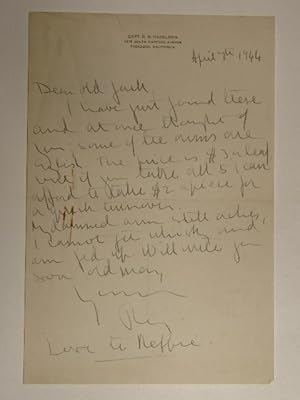 CAPT. R. B. HASELDEN
PASADENA, CALIFORNIA
April 7th 1944
Dear old Jack,
I have just found these
and at once thought of
you, some of the arms are
The price is $3 a leaf
but if you take all 5 I can
afford to take $2 apiece for
a quick turnover.
My damned arm still aches,
I cannot get whisky and
am fed up. Will write you
soon old man,
Yours
Love to